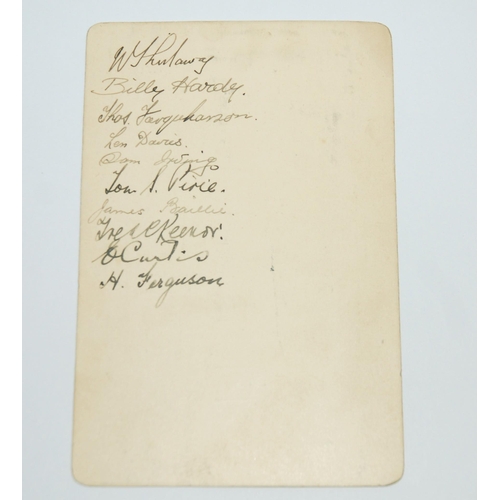 Billy Hardy.
Thos. Farquharson.
Len Davies.
Sam Irving
Tom S. Pirie.
James Baillie.
Fred C Keenor.
E Curtis
H. Ferguson